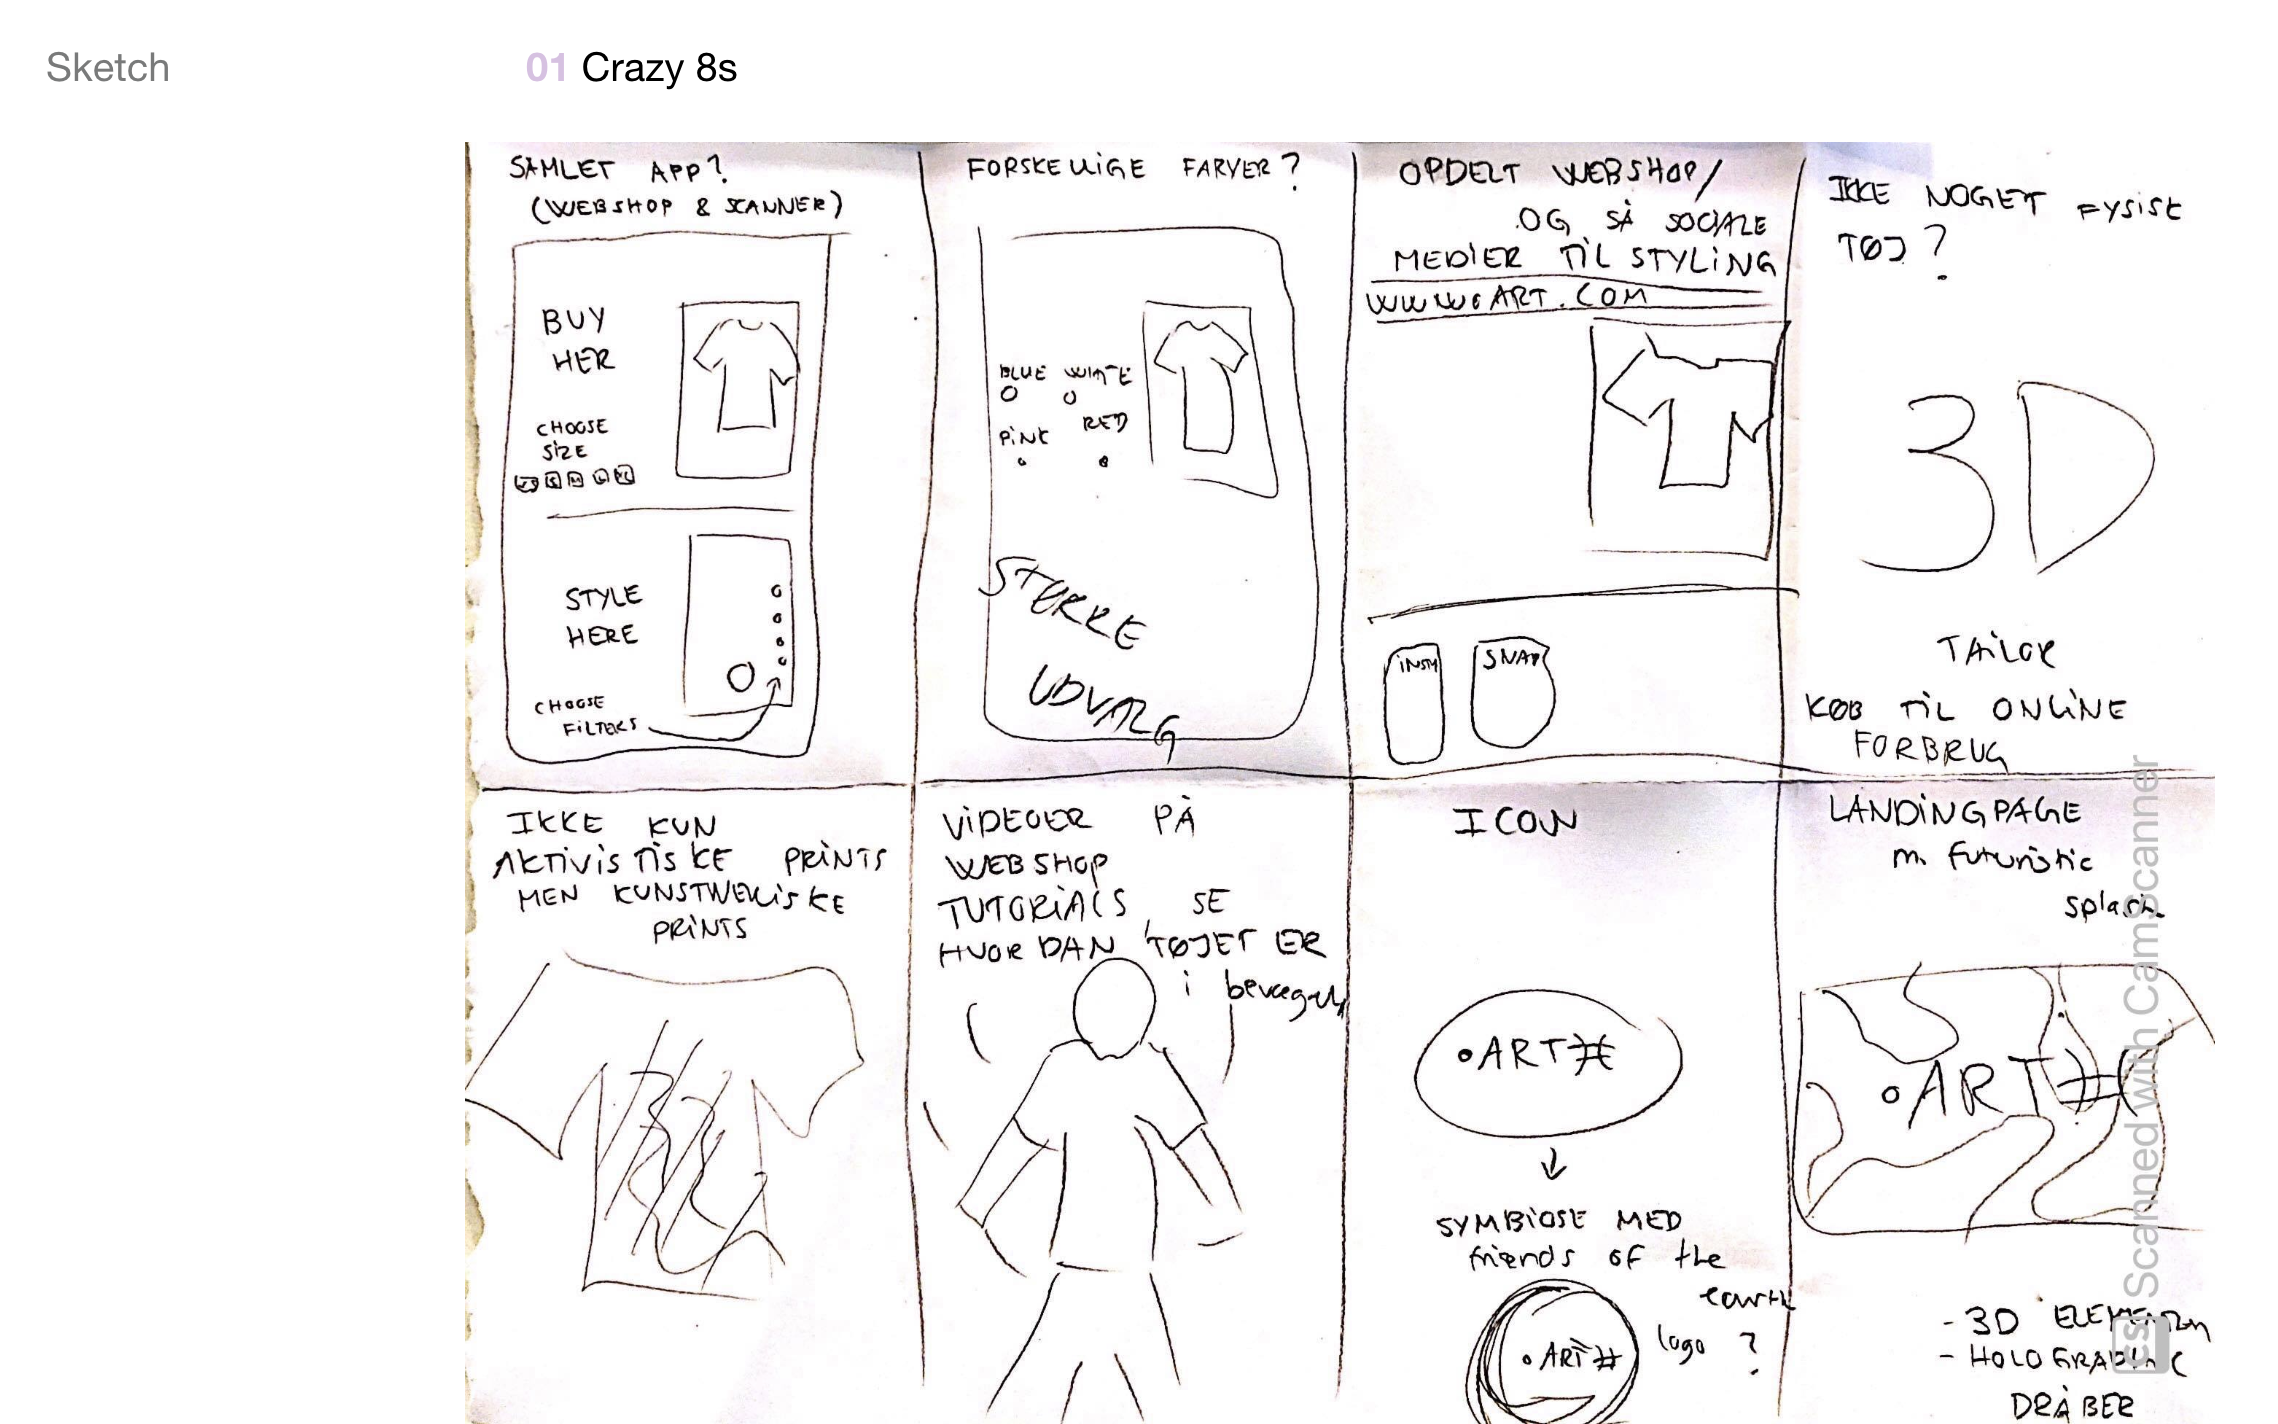 Sketch
01 Crazy 8s
SAMLET APP?
(WEBSHOP & SCANNER)
BUY
HER
CHOOSE
SIZE
STYLE
HERE
CHOOSE
FILTERS
FORSKELLIGE FARVER?
BLUE WHITE
PINK RED
STØRRE
UDVALG
OPDELT WEBSHOP/
OG SÅ SOCIALE
MEDIER TIL STYLING
ART.COM
INSTA SNAP
IKKE NOGET FYSISK
TØJ?
3D
TAILOR
KØB TIL ONLINE
FORBRUG
IKKE KUN
AKTIVISTISKE PRINTS
MEN KUNSTNERISKE
PRINTS
VIDEOER PÅ
WEBSHOP
TUTORIALS, SE
HVORDAN TØJET ER
i bevægelse
ICON
•ART#
SYMBIOSE MED
friends of the
earth
logo ?
•ART#
LANDINGPAGE
m. futuristic
splash
•ART#
- 3D ELEMENTER
- HOLOGRAPHIC
DRÅBER
CS Scanned with CamScanner